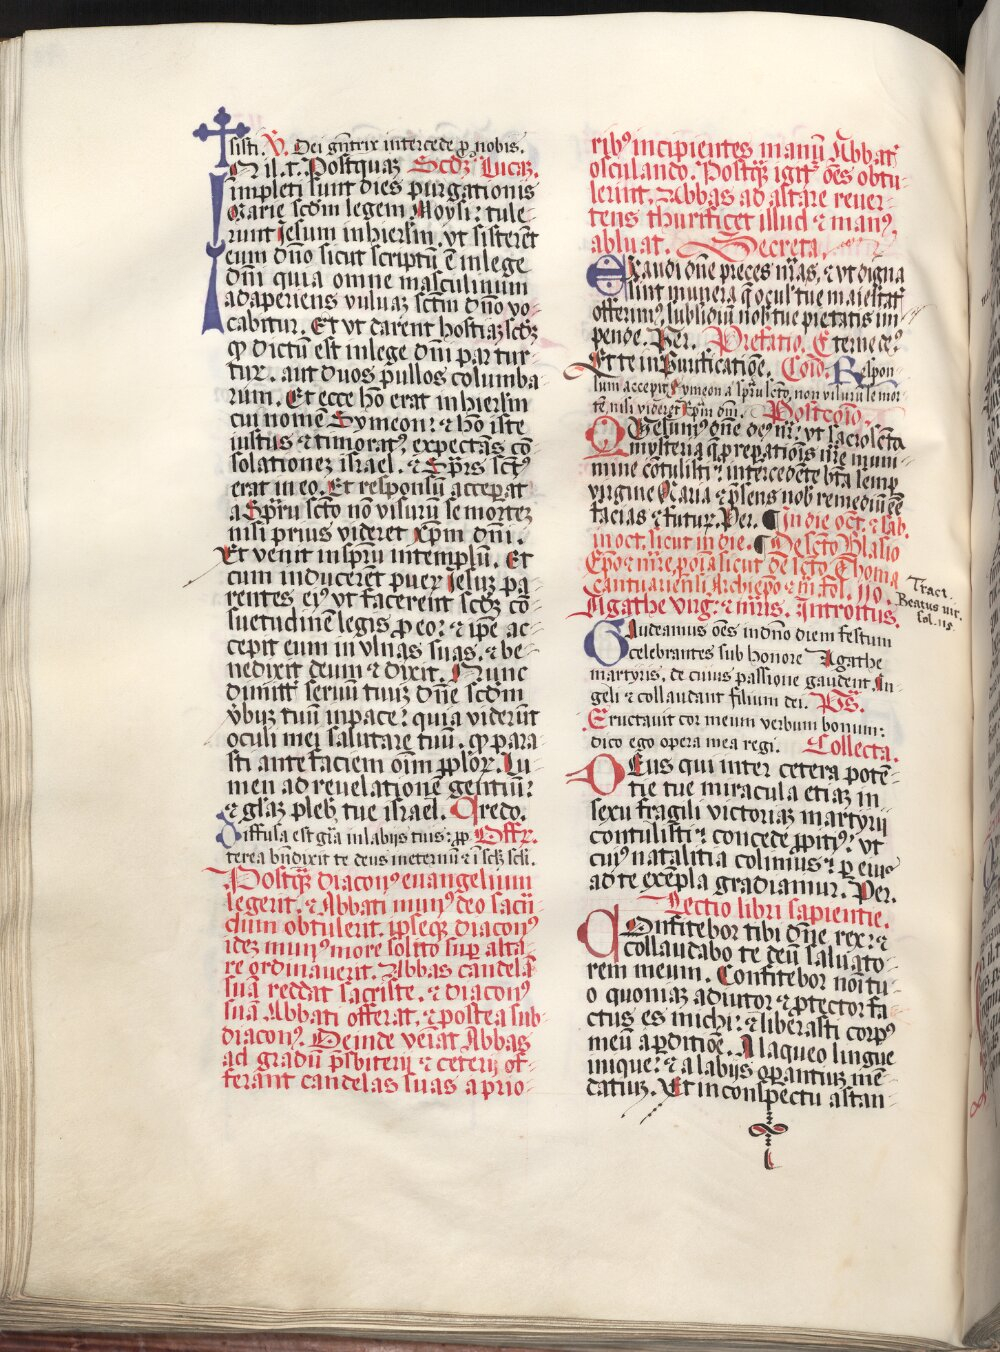 sisti. V̄. Dei gn̄trix intercede ꝓ nobis.
N il. t. Postquaꝫ Scd̄ꝫ Lucaꝫ.
impleti sunt dies purgationis
Marie scd̄m legem Moysi: tule-
runt Jesum in hierlm̄. vt sisterēt
eum dn̄o sicut scriptū ē in lege
dn̄i quia omne masculinum
adaperiens vuluaꝫ sctm̄ dn̄o vo-
cabitur. Et vt darent hostiaꝫ scd̄ꝫ
ꝙ dictū est in lege dn̄i par tur-
turꝝ. aut duos pullos columba-
rum. Et ecce hō erat in hierlm̄
cui nomē Symeon: ⁊ hō iste
iustus ⁊ timoratꝰ expectās cō-
solationeꝫ israel. ⁊ Sp̄us sctꝰ
erat in eo. Et responsū acceperat
a Sp̄u sctō nō visurū se morteꝫ
nisi prius videret xp̄m dn̄i.
Et venit in sp̄u in templū. Et
cum inducerent puerꝫ Jesuꝫ pa-
rentes eiꝰ vt facerent scd̄ꝫ cō-
suetudinē legis ꝓ eo: ⁊ ip̄e ac-
cepit eum in vlnas suas. ⁊ be-
nedixit deum ⁊ dixit. Nunc
dimitt̄ seruū tuuꝫ dn̄e scd̄m
v̄buꝫ tuū in pace: quia viderūt
oculi mei salutare tuū. ꝙ para-
sti ante faciem oīm pp̄loꝝ. Lu-
men ad reuelationē gentium:
⁊ glāꝫ plebꝫ tue israel. Credo.
Diffusa est grā in labijs tuis: ꝓp- Offꝝ.
terea bn̄dixit te deus in eternū ⁊ ī sc̄lꝫ scl̄i.
Postqꝫ diaconꝰ euangelium
legerit. ⁊ Abbati munꝰ deo sacū
dium obtulerit. ipseqꝫ diaconꝰ
ideꝫ munꝰ more solito suꝑ alta-
re ordinauerit. Abbas candelā
suā reddat sacriste. ⁊ diaconꝰ
suā Abbati offerat. ⁊ postea sub-
diaconꝰ. Deinde veniat Abbas
ad gradū p̄sbiterij ⁊ ceteri of-
ferant candelas suas a prio-
ribꝰ incipientes manū Abbat̄
osculando. Postqꝫ igit̄ oēs obtu-
lerint. Abbas ad altare reuer-
tens thurificet illud ⁊ manꝰ
abluat. Secreta.
Exaudi dn̄e preces nr̄as. ⁊ vt digna
sint munera q̄ oculꝭ tue maiestatꝭ
offerimꝰ. subsidiū nobꝭ tue pietatis im-
pende. Per. Prefatio. Eterne dꝰ.
Et te in Purificatiōe. Cōio. Respon-
sum accepit Symeon a sp̄u sctō. non visurū se mor-
tē. nisi videret xp̄m dn̄i. Postcōio.
Quesumꝰ dn̄e deꝰ nr̄: vt sacrosctā
mysteria q̄ ꝓ reparatiōis nr̄e muni-
mine cōtulisti: intercedēte btā semꝑ
virgine Maria ⁊ p̄sens nob̄ remediū eē
facias ⁊ futurꝝ. Per. ¶ In die oct. ⁊ sab.
in oct. sicut in die. ¶ De sctō Blasio
Ep̄o ⁊ mr̄e. po͞ia sicut de sctō Thoma
Cantuariensi Archiep̄o ⁊ m̄. fol. 110.
Agathe virg: ⁊ mr̄is. Introitus.
Gaudeamus oēs in dn̄o diem festum
celebrantes sub honore Agathe
martyris. de cuius passione gaudent An-
geli ⁊ collaudant filium dei. P̄s.
Eructauit cor meum verbum bonum:
dico ego opera mea regi. Collecta.
Deus qui inter cetera potē-
tie tue miracula etiaꝫ in
sexu fragili victoriaꝫ martyrij
contulisti: concede ꝓpitiꝰ: vt
cuiꝰ natalitia colimus: ꝑ eius
ad te exēpla gradiamur. Per.
Lectio libri sapientie.
Confitebor tibi dn̄e rex: ⁊
collaudabo te deū saluato-
rem meum. Confitebor noī tu-
o quoniaꝫ adiutor ⁊ ꝓtector fa-
ctus es michi: ⁊ liberasti corpꝰ
meū a ꝑditiōe. A laqueo lingue
inique: ⁊ a labijs oꝑantiuꝫ mē-
datiuꝫ. Et in conspectu astan-
Tract.
Beatus vir.
fol. 115.